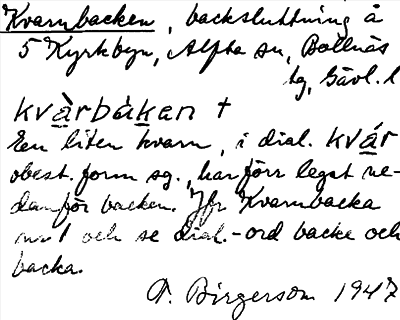 Kvarnbacken, backsluttning å
5 Kyrkbyn, Alfta sn, Bollnäs
tg, Gävl. l
kvàrbàkan †
En liten kvarn, i dial. kvár
obest. form sg., har förr legat ne-
danför backen. Jfr Kvarnbacka
nr 1 och se dial.-ord backe och
backa.
Birgerson 1947